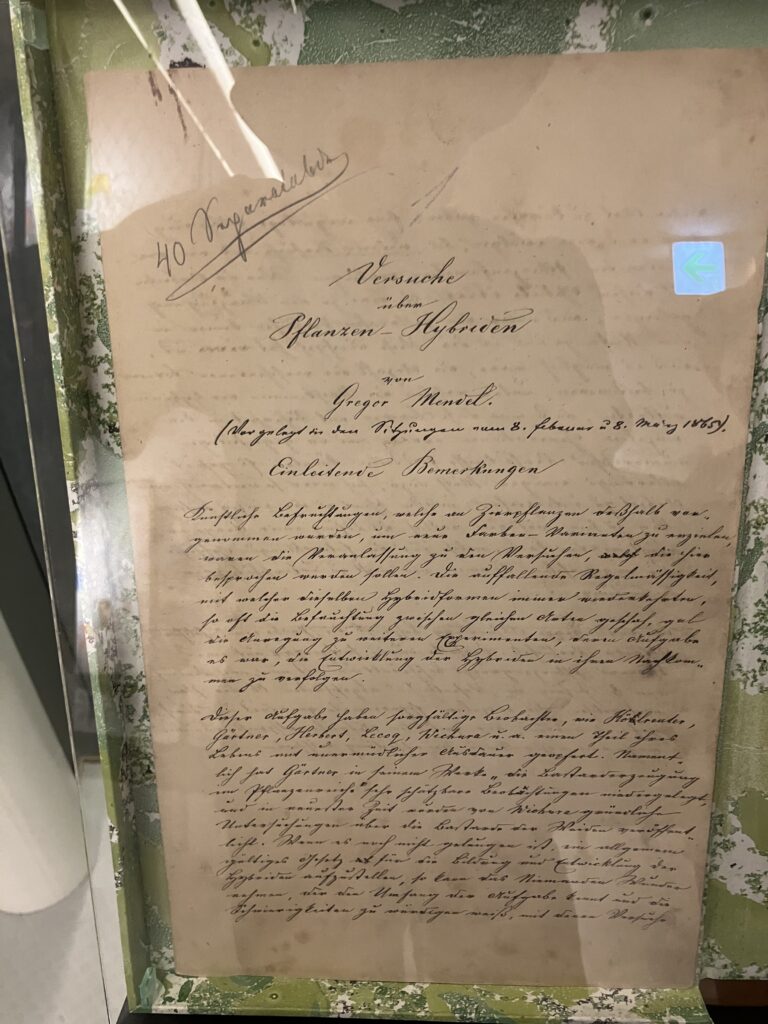 40 Separatabdr.
Versuche
über
Pflanzen-Hybriden
von
Gregor Mendel.
(Vorgelegt in den Sitzungen vom 8. Februar u 8. März 1865).
Einleitende Bemerkungen
Künstliche Befruchtungen, welche an Zierpflanzen deßhalb vor-
genommen wurden, um neue Farben-Varianten zu erzielen,
waren die Veranlassung zu den Versuchen, die hier
besprochen werden sollen. Die auffallende Regelmässigkeit,
mit welcher dieselben Hybridformen immer wiederkehrten,
so oft die Befruchtung zwischen gleichen Arten geschah, gab
die Anregung zu weiteren Experimenten, deren Aufgabe
es war, die Entwicklung der Hybriden in ihren Nachkom-
men zu verfolgen.
Dieser Aufgabe haben sorgfältige Beobachter, wie Kölreuter,
Gärtner, Herbert, Lecoq, Wichura u. a. einen Theil ihres
Lebens mit unermüdlicher Ausdauer geopfert. Nament-
lich hat Gärtner in seinem Werke „die Bastarderzeugung
im Pflanzenreiche" sehr schätzbare Beobachtungen niedergelegt,
und in neuester Zeit wurden von Wichura gründliche
Untersuchungen über die Bastarde der Weiden veröffent-
licht. Wenn es noch nicht gelungen ist, ein allgemein
giltiges Gesetz für die Bildung und Entwicklung der
Hybriden aufzustellen, so kann das Niemanden Wunder
nehmen, der den Umfang der Aufgabe kennt und die
Schwierigkeiten zu würdigen weiß, mit denen Versuche